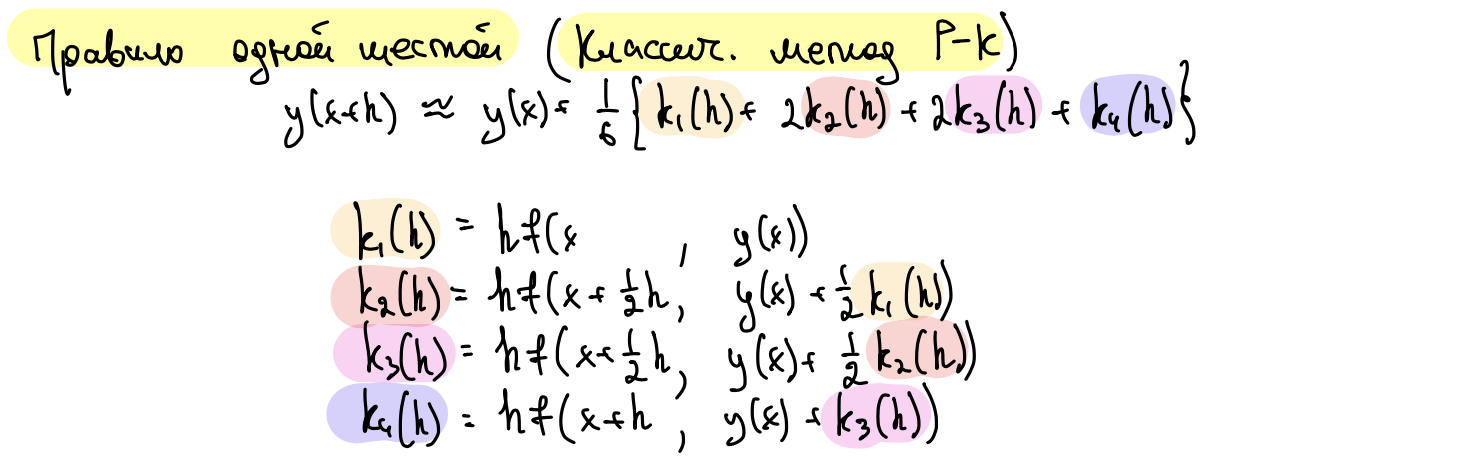 Правило одной шестой (Классич. метод Р-К)
y(x+h) ≈ y(x) + 1/6 { k₁(h) + 2k₂(h) + 2k₃(h) + k₄(h) }
k₁(h) = hf(x , y(x))
k₂(h) = hf(x + 1/2 h, y(x) + 1/2 k₁(h))
k₃(h) = hf(x + 1/2 h, y(x) + 1/2 k₂(h))
k₄(h) = hf(x+h , y(x) + k₃(h))